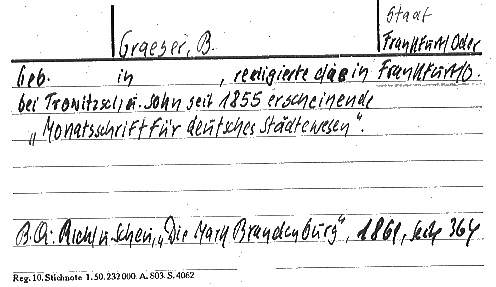 Staat
Graeser, B. Frankfurt Oder
Geb. in , redigierte das in Frankfurt/O.
bei Trowitzsch u. Sohn seit 1855 erscheinende
„Monatsschrift für deutsches Städtewesen".
B.A: Riehl u. Scheu, „Die Mark Brandenburg", 1861, Seite 364
Reg. 10. Stichnote 1. 50. 232 000. A. 803. S. 4062